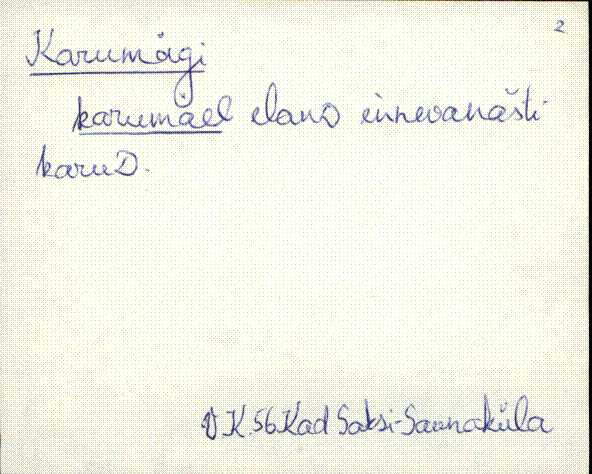 2
Karumägi
karumäel elanD ennevanašti
karuD.
V K. 56 Kad Saksi-Saunaküla